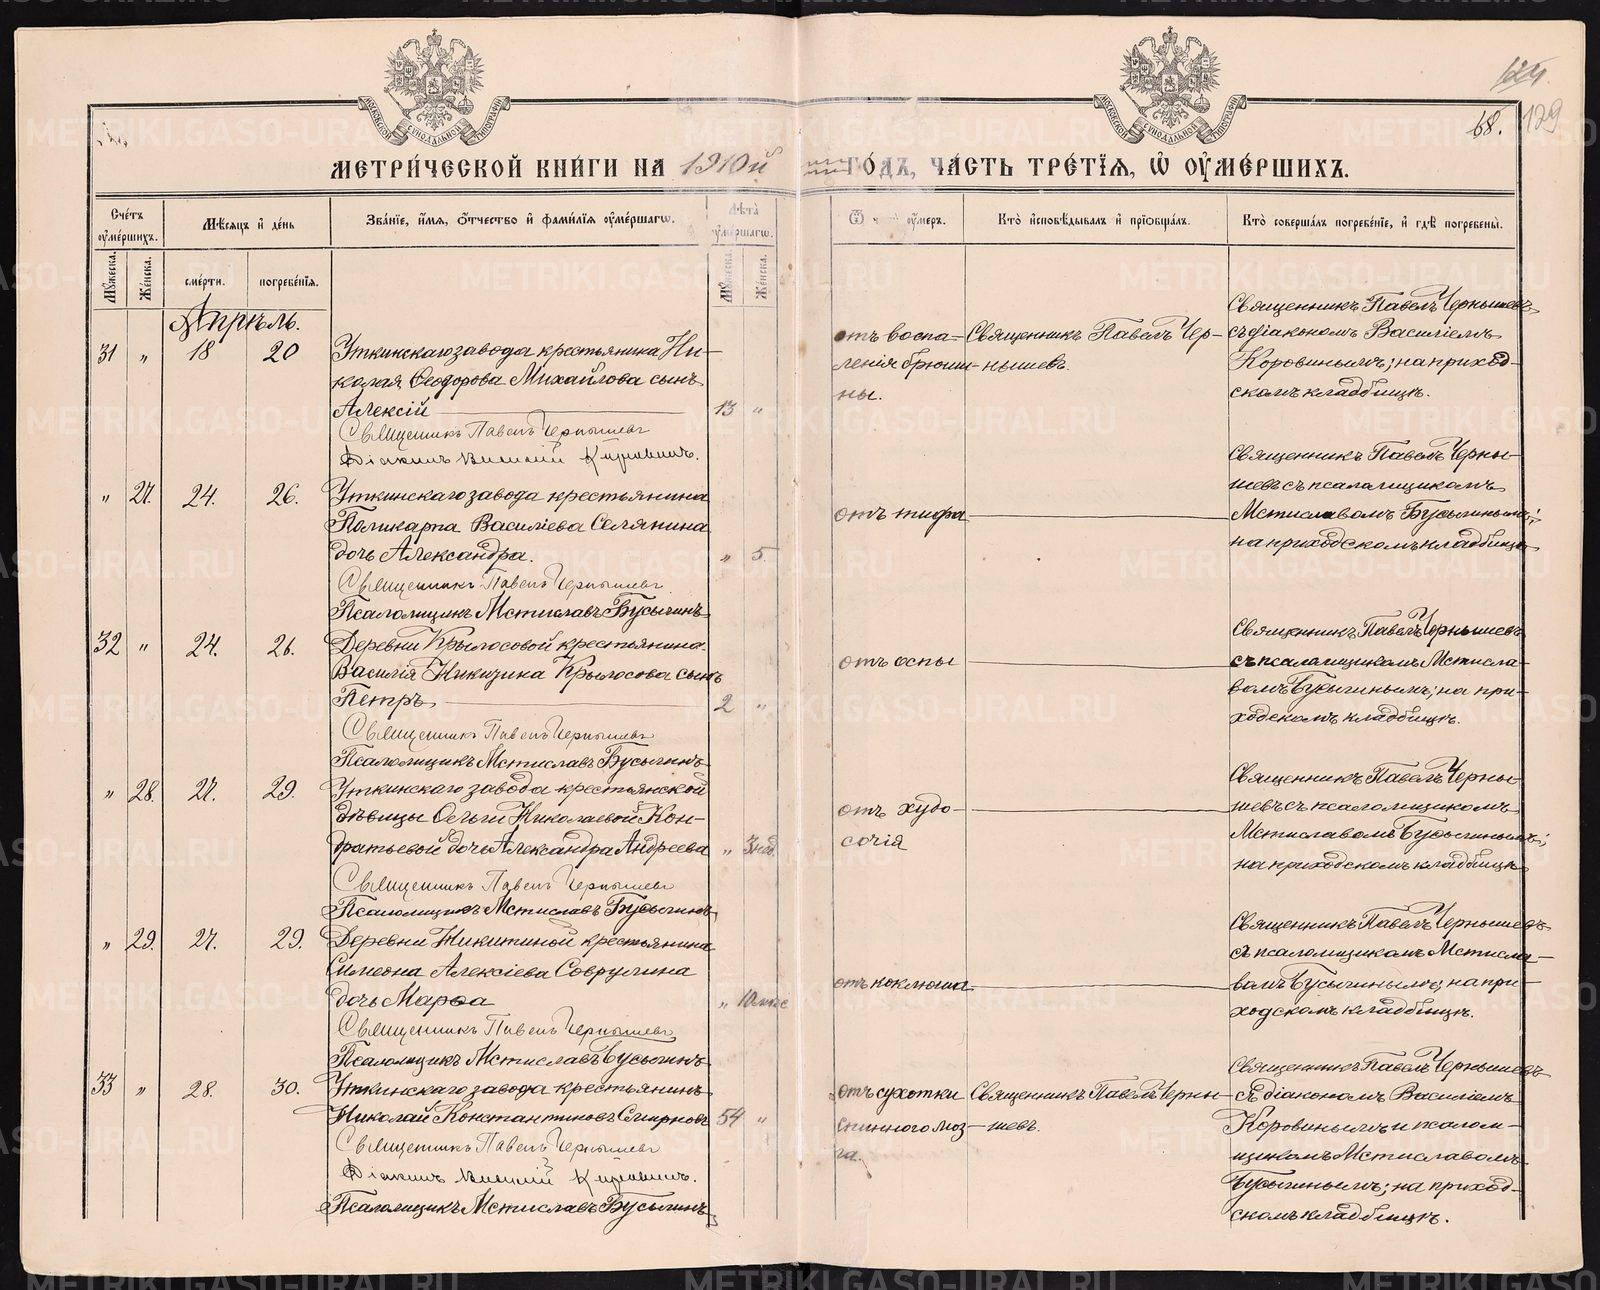 124.
68. 129
МЕТРИ́ЧЕСКОЙ КНИ́ГИ НА 1910й ГО́ДЪ, ЧА́СТЬ ТРЕ́ТЇЯ, Ѡ ОУМЕ́РШИХЪ.
Сче́тъ оуме́ршихъ.
Мѣсяцъ и де́нь
Зва́нїе, и́мя, о́тчество и фами́лїя оуме́ршагѡ.
Лѣта̀ оуме́ршагѡ.
Кто̀ исповѣ́дывалъ и прїѡбща́лъ.
Кто̀ соверша́лъ погребе́нїе, и гдѣ̀ погребены̀.
Мꙋ́жеска.
Же́нска.
сме́рти.
погребе́нїя.
Мꙋ́жеска.
Же́нска.
Апрѣль.
31 „ 18 20
Уткинскаго завода крестьянина Ни-
колая Ѳеодорова Михайлова сынъ
Алексій 13 „
Священникъ Павелъ Чернышевъ
Діаконъ Василій Коровинъ.
отъ воспа-
ленія брюши-
ны.
Священникъ Павелъ Чер-
нышевъ.
Священникъ Павелъ Чернышевъ
съ діакономъ Василіемъ
Коровинымъ; на приход-
скомъ кладбищѣ.
„ 27. 24. 26.
Уткинскаго завода крестьянина
Поликарпа Василіева Селянина
дочь Александра. „ 5.
Священникъ Павелъ Чернышевъ
Псаломщикъ Мстиславъ Бусыгинъ
отъ тифа
Священникъ Павелъ Черны-
шевъ съ псаломщикомъ
Мстиславомъ Бусыгинымъ;
на приходскомъ кладбищѣ
32 „ 24. 26.
Деревни Крылосовой крестьянина
Василія Никизина Крылосова сынъ
Петръ 2 „
Священникъ Павелъ Чернышевъ
Псаломщикъ Мстиславъ Бусыгинъ
отъ оспы
Священникъ Павелъ Чернышевъ
съ псаломщикомъ Мстисла-
вомъ Бусыгинымъ; на при-
ходскомъ кладбищѣ.
„ 28. 27. 29.
Уткинскаго завода крестьянской
дѣвицы Ольги Николаевой Кон-
дратьевой дочь Александра Андреева „ 3 нед.
Священникъ Павелъ Чернышевъ
Псаломщикъ Мстиславъ Бусыгинъ
отъ худо-
сочія
Священникъ Павелъ Черны-
шевъ съ псаломщикомъ
Мстиславомъ Бусыгинымъ;
на приходскомъ кладбищѣ
„ 29. 27. 29.
Деревни Никитиной крестьянина
Симеона Алексіева Соврулина
дочь Марѳа „ 10 мѣс
Священникъ Павелъ Чернышевъ
Псаломщикъ Мстиславъ Бусыгинъ
отъ коклюша
Священникъ Павелъ Чернышевъ
съ псаломщикомъ Мстисла-
вомъ Бусыгинымъ; на при-
ходскомъ кладбищѣ.
33 „ 28. 30.
Уткинскаго завода крестьянинъ
Николай Константиновъ Смирновъ 54 „
Священникъ Павелъ Чернышевъ
Діаконъ Василій Коровинъ.
Псаломщикъ Мстиславъ Бусыгинъ
отъ сухотки
спинного моз-
га.
Священникъ Павелъ Черны-
шевъ.
Священникъ Павелъ Чернышевъ
съ діакономъ Василіемъ
Коровинымъ и псалом-
щикомъ Мстиславомъ
Бусыгинымъ; на приход-
скомъ кладбищѣ.
METRIKI.GASO-URAL.RU